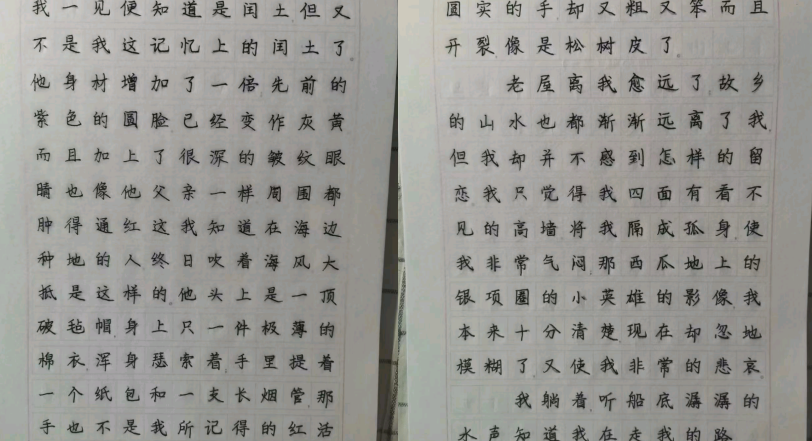 我一见便知道是闰土但又
不是我这记忆上的闰土了
他身材增加了一倍先前的
紫色的圆脸已经变作灰黄
而且加上了很深的皱纹眼
睛也像他父亲一样周围都
肿得通红这我知道在海边
种地的人终日吹着海风大
抵是这样的他头上是一顶
破毡帽身上只一件极薄的
棉衣浑身瑟索着手里提着
一个纸包和一支长烟管那
手也不是我所记得的红活
圆实的手却又粗又笨而且
开裂像是松树皮了
老屋离我愈远了故乡
的山水也都渐渐远离了我
但我却并不感到怎样的留
恋我只觉得我四面有看不
见的高墙将我隔成孤身使
我非常气闷那西瓜地上的
银项圈的小英雄的影像我
本来十分清楚现在却忽地
模糊了又使我非常的悲哀
我躺着听船底潺潺的
水声知道我在走我的路